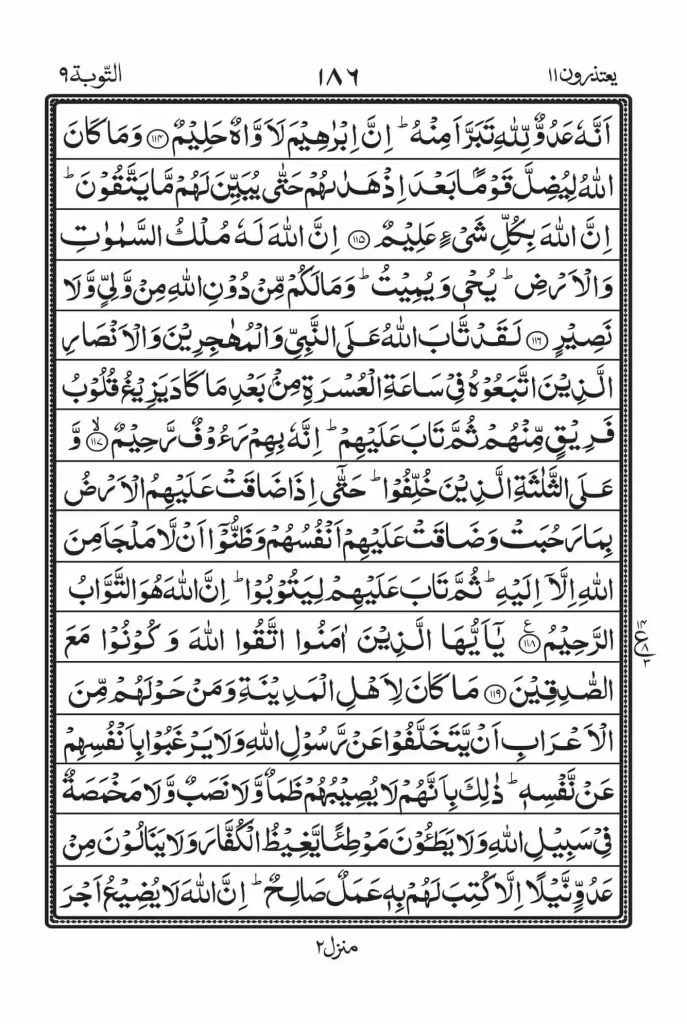 يعتذرون ۱۱ ۱۸۶ التّوبة ۹
اَنَّهٗ عَدُوٌّ لِّلّٰهِ تَبَرَّاَ مِنْهُ ؕ اِنَّ اِبْرٰهِيْمَ لَاَوَّاهٌ حَلِيْمٌ ﴿۱۱۴﴾ وَمَا كَانَ
اللّٰهُ لِيُضِلَّ قَوْمًۢا بَعْدَ اِذْ هَدٰىهُمْ حَتّٰى يُبَيِّنَ لَهُمْ مَّا يَتَّقُوْنَ ؕ
اِنَّ اللّٰهَ بِكُلِّ شَىْءٍ عَلِيْمٌ ﴿۱۱۵﴾ اِنَّ اللّٰهَ لَهٗ مُلْكُ السَّمٰوٰتِ
وَالْاَرْضِ ؕ يُحْىٖ وَيُمِيْتُ ؕ وَمَا لَكُمْ مِّنْ دُوْنِ اللّٰهِ مِنْ وَّلِىٍّ وَّلَا
نَصِيْرٍ ﴿۱۱۶﴾ لَقَدْ تَّابَ اللّٰهُ عَلَى النَّبِىِّ وَالْمُهٰجِرِيْنَ وَالْاَنْصَارِ
الَّذِيْنَ اتَّبَعُوْهُ فِىْ سَاعَةِ الْعُسْرَةِ مِنْۢ بَعْدِ مَا كَادَ يَزِيْغُ قُلُوْبُ
فَرِيْقٍ مِّنْهُمْ ثُمَّ تَابَ عَلَيْهِمْ ؕ اِنَّهٗ بِهِمْ رَءُوْفٌ رَّحِيْمٌ ﴿۱۱۷﴾ۙ وَّ
عَلَى الثَّلٰثَةِ الَّذِيْنَ خُلِّفُوْا ؕ حَتّٰۤى اِذَا ضَاقَتْ عَلَيْهِمُ الْاَرْضُ
بِمَا رَحُبَتْ وَضَاقَتْ عَلَيْهِمْ اَنْفُسُهُمْ وَظَنُّوْۤا اَنْ لَّا مَلْجَاَ مِنَ
اللّٰهِ اِلَّاۤ اِلَيْهِ ؕ ثُمَّ تَابَ عَلَيْهِمْ لِيَتُوْبُوْا ؕ اِنَّ اللّٰهَ هُوَ التَّوَّابُ
الرَّحِيْمُ ﴿۱۱۸﴾ۧ يٰۤاَيُّهَا الَّذِيْنَ اٰمَنُوا اتَّقُوا اللّٰهَ وَكُوْنُوْا مَعَ
الصّٰدِقِيْنَ ﴿۱۱۹﴾ مَا كَانَ لِاَهْلِ الْمَدِيْنَةِ وَمَنْ حَوْلَهُمْ مِّنَ
الْاَعْرَابِ اَنْ يَّتَخَلَّفُوْا عَنْ رَّسُوْلِ اللّٰهِ وَلَا يَرْغَبُوْا بِاَنْفُسِهِمْ
عَنْ نَّفْسِهٖ ؕ ذٰلِكَ بِاَنَّهُمْ لَا يُصِيْبُهُمْ ظَمَاٌ وَّلَا نَصَبٌ وَّلَا مَخْمَصَةٌ
فِىْ سَبِيْلِ اللّٰهِ وَلَا يَطَـُٔوْنَ مَوْطِئًا يَّغِيْظُ الْكُفَّارَ وَلَا يَنَالُوْنَ مِنْ
عَدُوٍّ نَّيْلًا اِلَّا كُتِبَ لَهُمْ بِهٖ عَمَلٌ صَالِحٌ ؕ اِنَّ اللّٰهَ لَا يُضِيْعُ اَجْرَ
منزل ۲